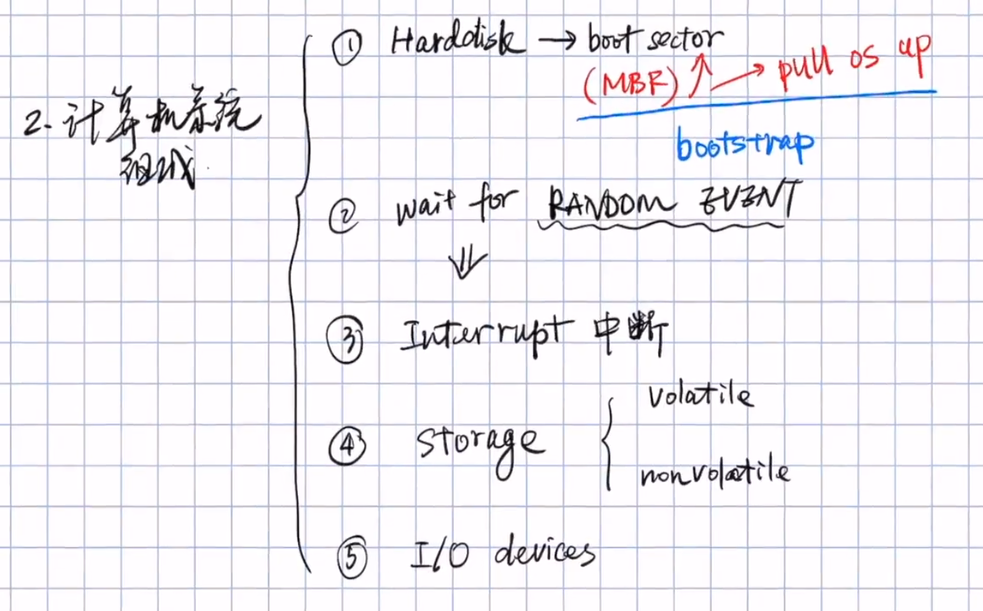 2. 计算机系统
组成
① Harddisk → boot sector
(MBR) ↗ → pull os up
bootstrap
② wait for RANDOM EVENT
⇓
③ Interrupt 中断
④ storage { volatile
nonvolatile
⑤ I/O devices